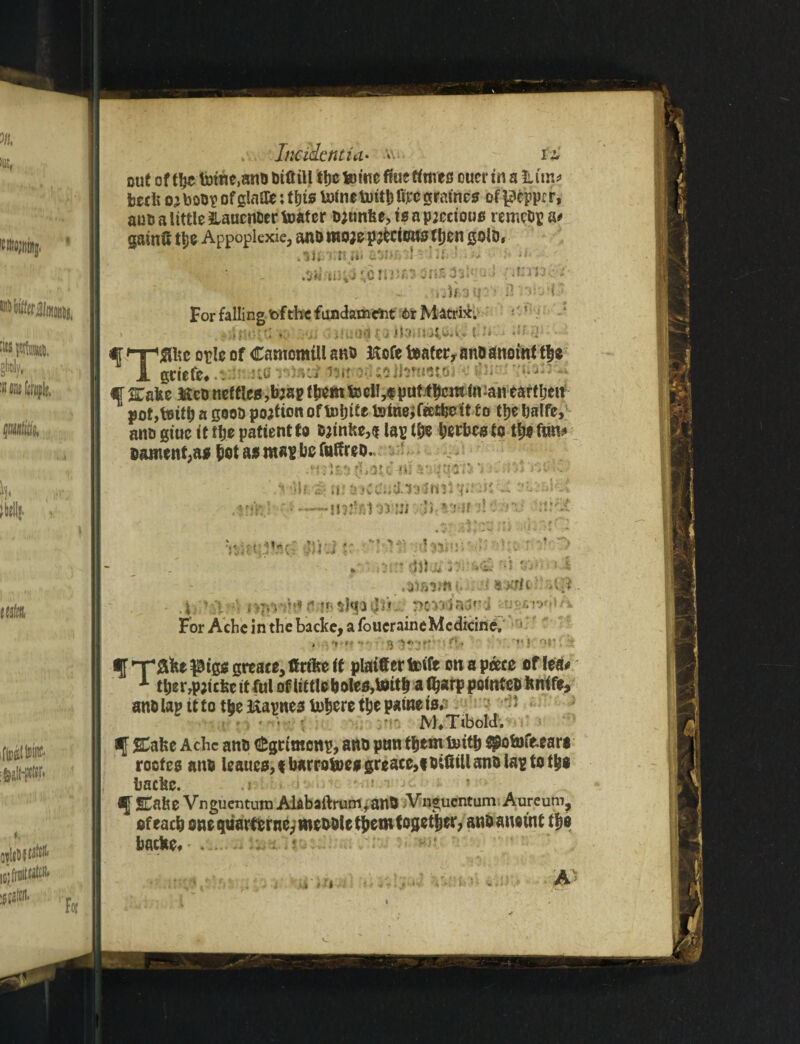 Incidentia. 12
out of the wine, and distill the wine fiue times ouer in a Lim-
beck or body of glasse: this wine with fire graines of Pepper,
and a little Lauender water drunke, is a precious remedy a-
gainst the Appoplexie, and more precious then gold.
For falling of the fundament or Matrix.
¶ TAke oyle of Camomill and Rose water, and anoint the
griefe.
¶ Take Red nettles, bray them well, & put them in an earthen
pot, with a good portion of white wine; seethe it to the halfe,
and giue it the patient to drinke, & lay the herbes to the fun-
dament, as hot as may be suffred.
For Ache in the backe, a soueraine Medicine.
¶ TAke Pigs greace, strike it plaister wise on a peece of lea-
ther, pricke it ful of little holes, with a sharp pointed knife,
and lay it to the Raynes where the paine is.
M. Tibold.
¶ Take Ache and Egrimony, and pun them with Mowse-eare
rootes and leaues, & barrowes greace, & distill and lay to the
backe.
¶ Take Vnguentum Alabastrum, and Vnguentum Aureum,
of each one quarterne, meddle them together, and anoint the
backe.
A
For